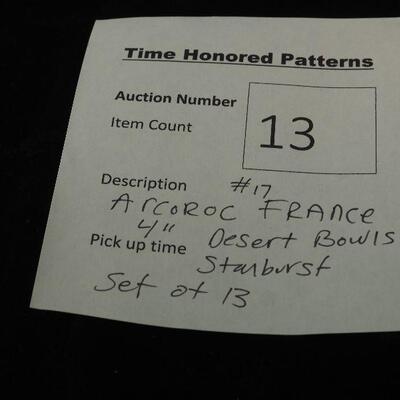 Time Honored Patterns
Auction Number
Item Count
13
Description #17
Arcoroc France
4" Desert Bowls
Pick up time
Starburst
Set of 13